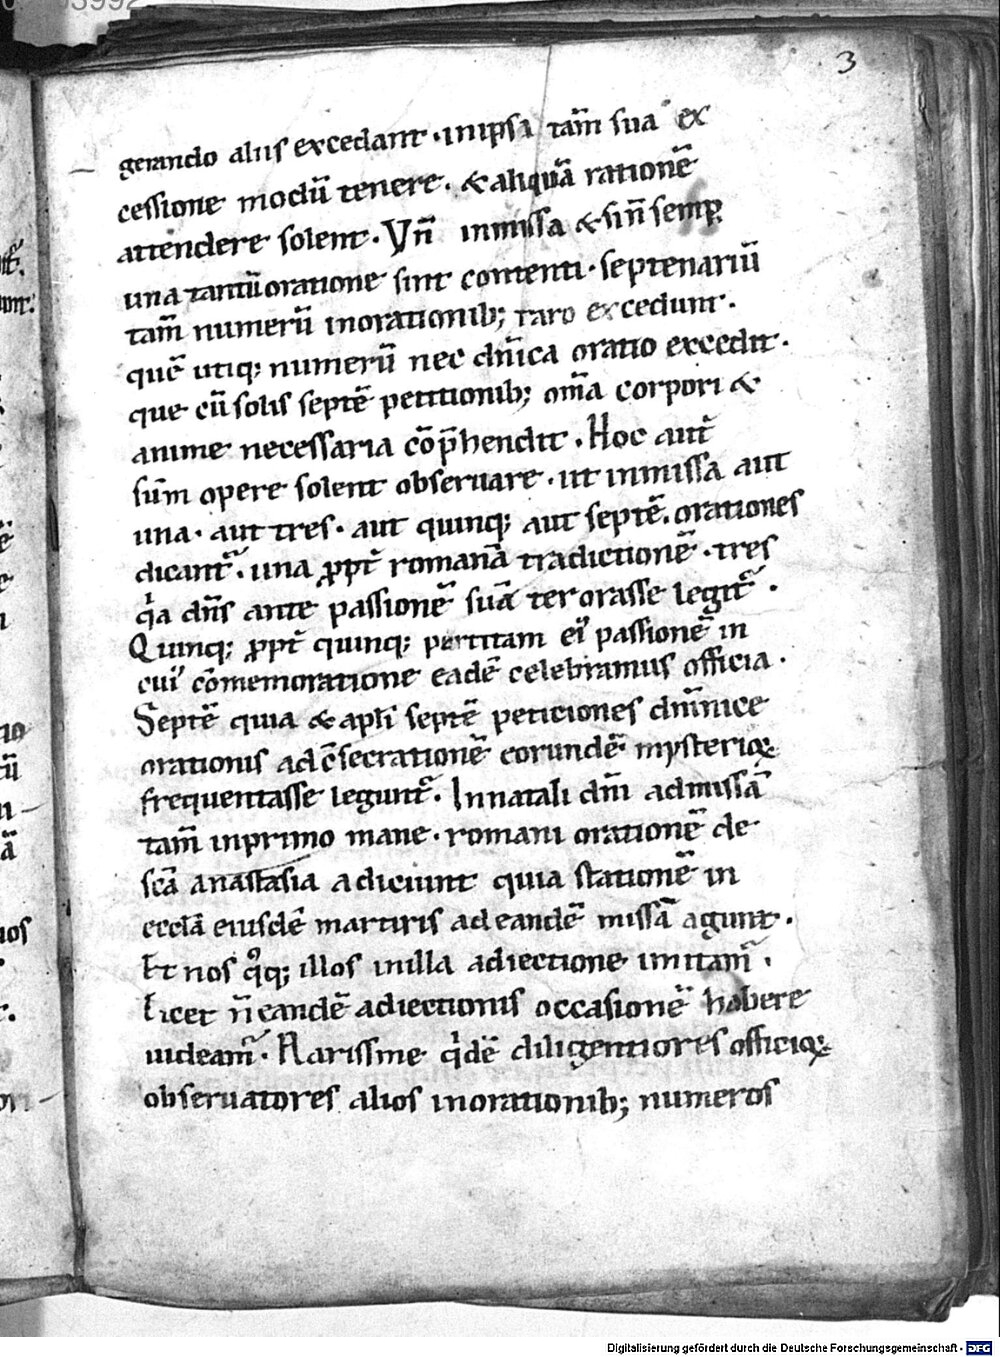 3
gerando aliis excedant · inipsa tam̄ sua ex
cessione modū tenere · & aliquā rationē
attendere solent · Vn̄ inmissa & sin̄ semꝑ
una tantū oratione sint contenti · septenariū
tam̄ numerū inorationib; raro excedunt ·
quē utiq; numerū nec dn̄ica oratio excedit ·
que cū solis septē petitionib; om̄a corpori &
anime necessaria cōp̄hendit · Hoc aut̄
sūm opere solent obseruare · ut inmissa aut
una · aut tres · aut quinq; aut septē · orationes
dicant᷑ · una ꝓpt̄ romanā tradictionē · tres
qͥa dn̄s ante passionē suā ter orasse legit᷑ ·
Quinq; ꝓpt̄ quinq; pertitam eiꝰ passionē in
cuiꝰ cōmemoratione eadē celebramus officia ·
Septē quia & apl̄i septē peticiones dn̄nice
orationis ad c̄secrationē eorundē mysterioꝝ
frequentasse legunt᷑ · Innatali dn̄i admissā
tam̄ inprimo mane · romani orationē de
sc̄a anastasia adiciunt quia stationē in
eccl̄a eiusdē martiris ad eandē missā agunt ·
Et nos qͦq; illos inilla adiectione imitam᷑ ·
Licet n̄ eandē adiectionis occasionē habere
uideam᷑ · Rarissme qͥdē diligentiores officioꝝ
obseruatores alios inorationib; numeros
Digitalisierung gefördert durch die Deutsche Forschungsgemeinschaft - DFG